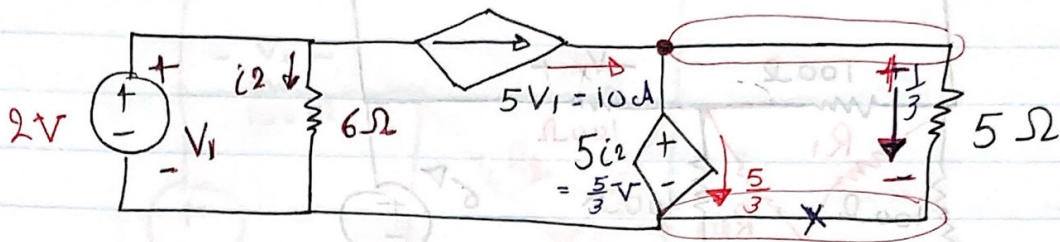 2V
+
-
V1
+
-
i2 ↓
6Ω
5V1 = 10A
5i2
= 5/3 V
+
-
5/3
+
1/3
-
5 Ω
x